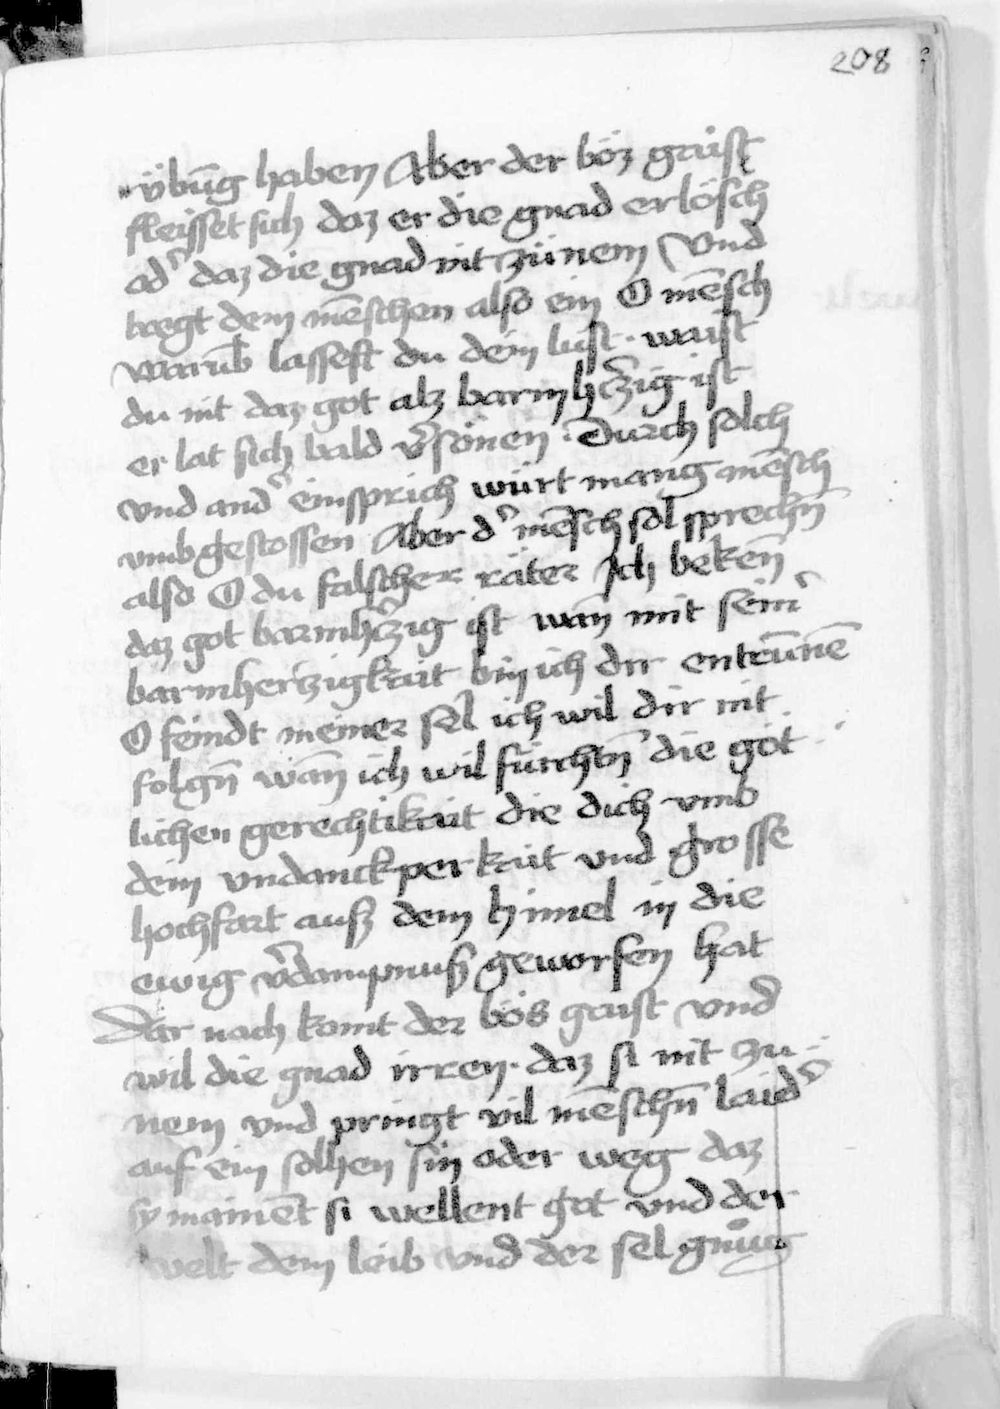 208
übu̅g haben Aber der böz gaist
fleisset sich daz er die gnad erlösch
od᾽ daz die gnad nit zü nem Vnd
tregt dem me̅schen also ein O me̅sch
waru̅b lassest du dein lust · waist
du nit daz got alz barmh᾽czig ist
er lat sich bald v᾽sönen · Durch solch
vnd and᾽ einsprich würt mang me̅sch
vmbgestossen Aber d᾽ me̅sch sol spreche̅
also O du falscher räter Ich beken̅
daz got barmh᾽czig ist wan̅ mit sein᾽
barmherczigkait bin ich dir entru̅ne̅
O feindt meiner sel ich wil dir nit
folgn̅ wan̅ ich wil fürchtn̅ die göt
lichen gerechtikait die dich vmb
dein vndanckperkait vnd grosse
hochfart auß dem himel in die
ewig v᾽dampnuß geworfen hat
Dar nach komt der bös gaist vnd
wil die gnad irren · daz si nit zu
nem vnd pringt vil me̅schn̅ laid᾽
auf ein solhen sin oder weg daz
sy maine̅t si wellent got vnd der
welt dem leib vnd der sel gnůg